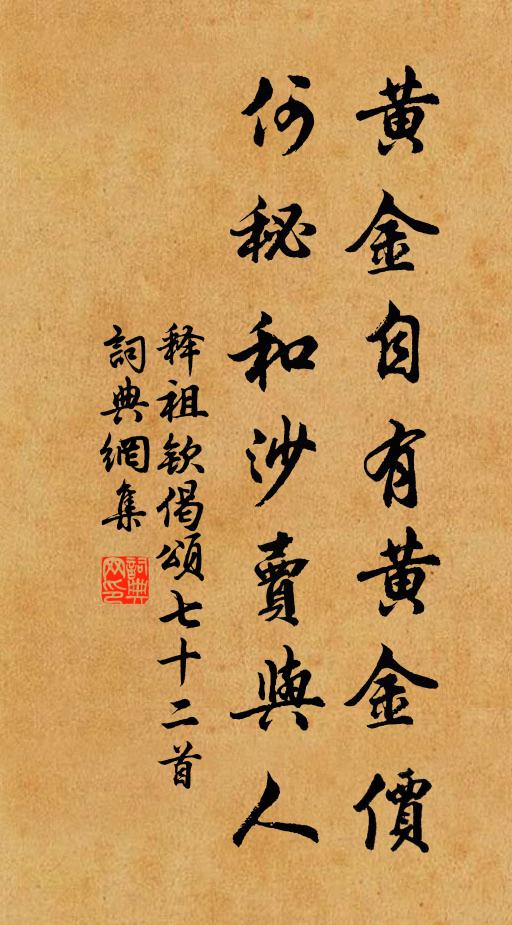 黄金自有黄金價
何秘和沙賣與人
释祖欽偈頌七十二首
詞典網集
詞典网印